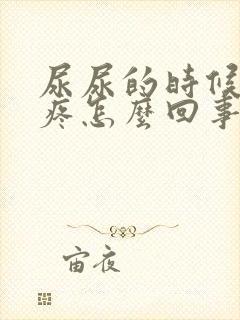 尿尿的時候
疼怎麼回事
宙夜